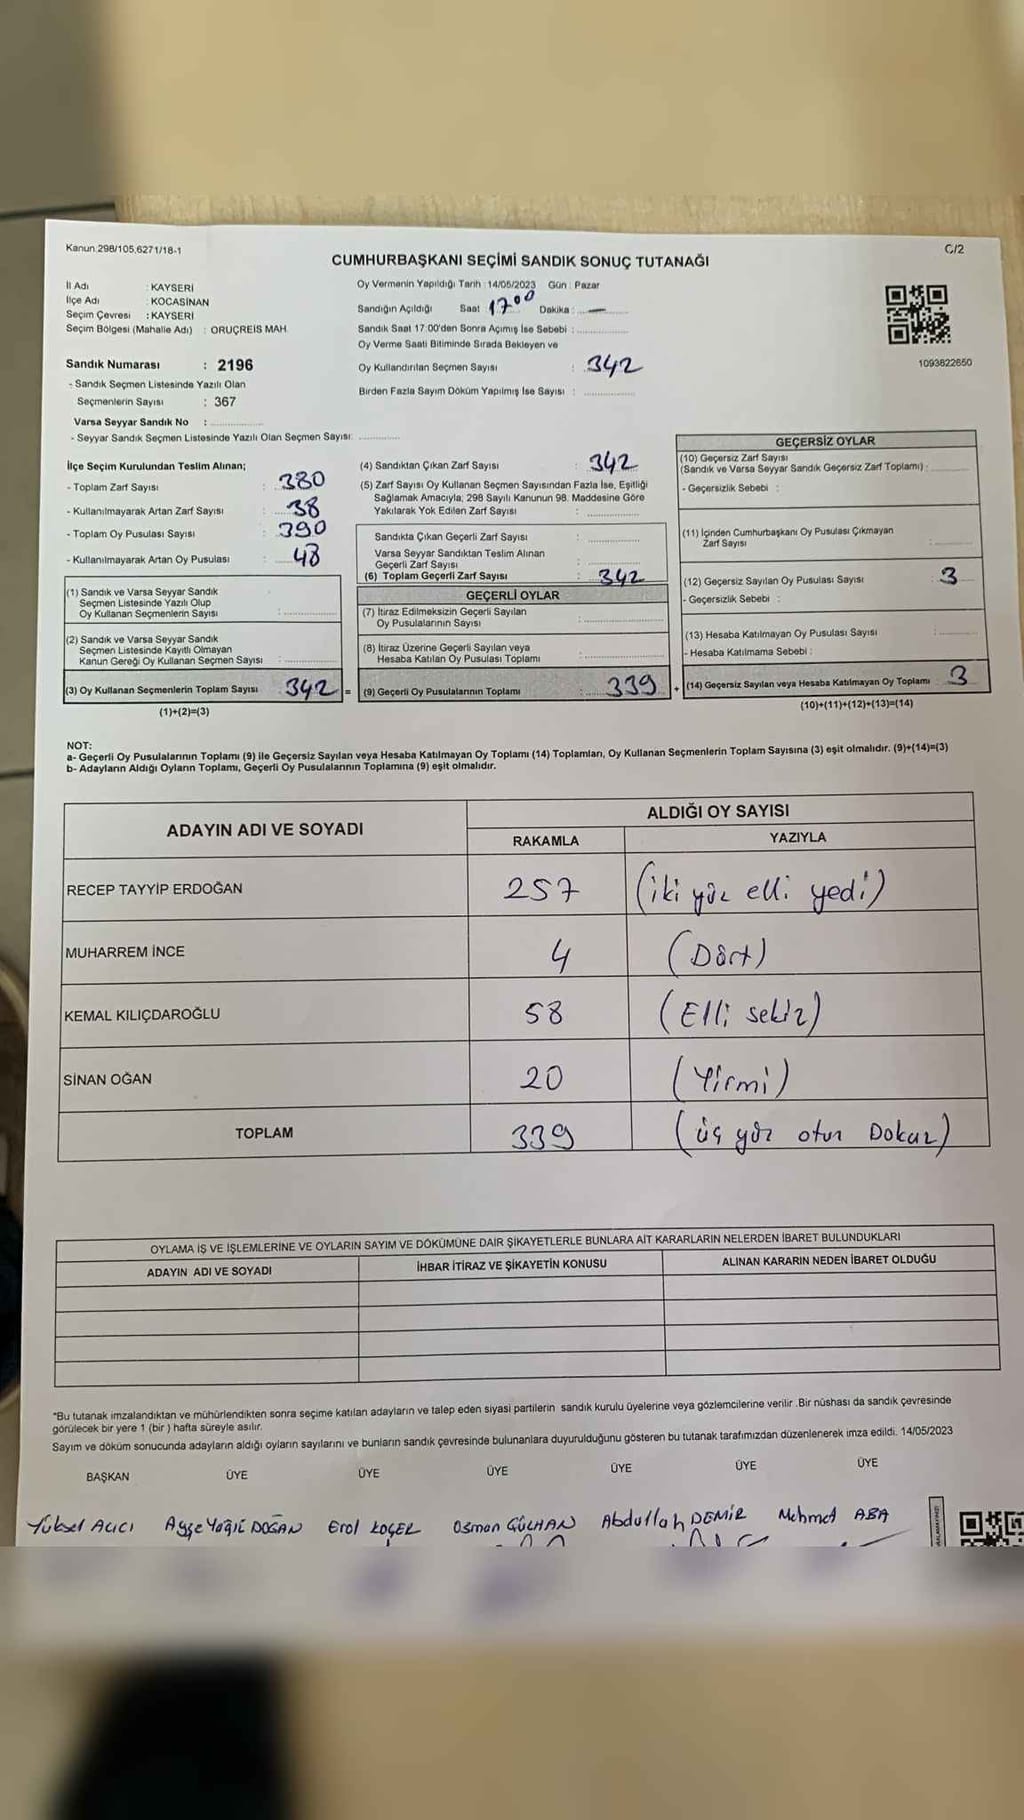 Kanun:298/105,6271/18-1
C/2
CUMHURBAŞKANI SEÇİMİ SANDIK SONUÇ TUTANAĞI
İl Adı : KAYSERİ
İlçe Adı : KOCASİNAN
Seçim Çevresi : KAYSERİ
Seçim Bölgesi (Mahalle Adı) : ORUÇREİS MAH.
Sandık Numarası : 2196
- Sandık Seçmen Listesinde Yazılı Olan
Seçmenlerin Sayısı : 367
Varsa Seyyar Sandık No :
- Seyyar Sandık Seçmen Listesinde Yazılı Olan Seçmen Sayısı:
Oy Vermenin Yapıldığı Tarih : 14/05/2023 Gün : Pazar
Sandığın Açıldığı Saat 17 00 Dakika : —
Sandık Saat 17:00'den Sonra Açımış İse Sebebi :
Oy Verme Saati Bitiminde Sırada Bekleyen ve
Oy Kullandırılan Seçmen Sayısı : 342
Birden Fazla Sayım Döküm Yapılmış İse Sayısı :
1093822650
İlçe Seçim Kurulundan Teslim Alınan;
- Toplam Zarf Sayısı : 380
- Kullanılmayarak Artan Zarf Sayısı : 38
- Toplam Oy Pusulası Sayısı : 390
- Kullanılmayarak Artan Oy Pusulası : 48
(1) Sandık ve Varsa Seyyar Sandık
Seçmen Listesinde Yazılı Olup
Oy Kullanan Seçmenlerin Sayısı :
(2) Sandık ve Varsa Seyyar Sandık
Seçmen Listesinde Kayıtlı Olmayan
Kanun Gereği Oy Kullanan Seçmen Sayısı :
(3) Oy Kullanan Seçmenlerin Toplam Sayısı 342 =
(1)+(2)=(3)
(4) Sandıktan Çıkan Zarf Sayısı : 342
(5) Zarf Sayısı Oy Kullanan Seçmen Sayısından Fazla İse, Eşitliği
Sağlamak Amacıyla; 298 Sayılı Kanunun 98. Maddesine Göre
Yakılarak Yok Edilen Zarf Sayısı :
Sandıkta Çıkan Geçerli Zarf Sayısı :
Varsa Seyyar Sandıktan Teslim Alınan
Geçerli Zarf Sayısı :
(6) Toplam Geçerli Zarf Sayısı : 342
GEÇERLİ OYLAR
(7) İtiraz Edilmeksizin Geçerli Sayılan
Oy Pusulalarının Sayısı :
(8) İtiraz Üzerine Geçerli Sayılan veya
Hesaba Katılan Oy Pusulası Toplamı :
(9) Geçerli Oy Pusulalarının Toplamı : 339 +
GEÇERSİZ OYLAR
(10) Geçersiz Zarf Sayısı
(Sandık ve Varsa Seyyar Sandık Geçersiz Zarf Toplamı) :
- Geçersizlik Sebebi :
(11) İçinden Cumhurbaşkanı Oy Pusulası Çıkmayan
Zarf Sayısı :
(12) Geçersiz Sayılan Oy Pusulası Sayısı : 3
- Geçersizlik Sebebi :
(13) Hesaba Katılmayan Oy Pusulası Sayısı :
- Hesaba Katılmama Sebebi :
(14) Geçersiz Sayılan veya Hesaba Katılmayan Oy Toplamı 3
(10)+(11)+(12)+(13)=(14)
NOT:
a- Geçerli Oy Pusulalarının Toplamı (9) ile Geçersiz Sayılan veya Hesaba Katılmayan Oy Toplamı (14) Toplamları, Oy Kullanan Seçmenlerin Toplam Sayısına (3) eşit olmalıdır. (9)+(14)=(3)
b- Adayların Aldığı Oyların Toplamı, Geçerli Oy Pusulalarının Toplamına (9) eşit olmalıdır.
ADAYIN ADI VE SOYADI ALDIĞI OY SAYISI
RAKAMLA YAZIYLA
RECEP TAYYİP ERDOĞAN 257 (iki yüz elli yedi)
MUHARREM İNCE 4 (Dört)
KEMAL KILIÇDAROĞLU 58 (Elli sekiz)
SİNAN OĞAN 20 (Yirmi)
TOPLAM 339 (üç yüz otuz Dokuz)
OYLAMA İŞ VE İŞLEMLERİNE VE OYLARIN SAYIM VE DÖKÜMÜNE DAİR ŞİKAYETLERLE BUNLARA AİT KARARLARIN NELERDEN İBARET BULUNDUKLARI
ADAYIN ADI VE SOYADI İHBAR İTİRAZ VE ŞİKAYETİN KONUSU ALINAN KARARIN NEDEN İBARET OLDUĞU
*Bu tutanak imzalandıktan ve mühürlendikten sonra seçime katılan adayların ve talep eden siyasi partilerin sandık kurulu üyelerine veya gözlemcilerine verilir .Bir nüshası da sandık çevresinde
görülecek bir yere 1 (bir ) hafta süreyle asılır.
Sayım ve döküm sonucunda adayların aldığı oyların sayılarını ve bunların sandık çevresinde bulunanlara duyurulduğunu gösteren bu tutanak tarafımızdan düzenlenerek imza edildi. 14/05/2023
BAŞKAN ÜYE ÜYE ÜYE ÜYE ÜYE ÜYE
Yüksel ALICI Ayşe DOĞAN Erol KOÇER Osman GÜLHAN Abdullah DEMİR Mehmet ABA